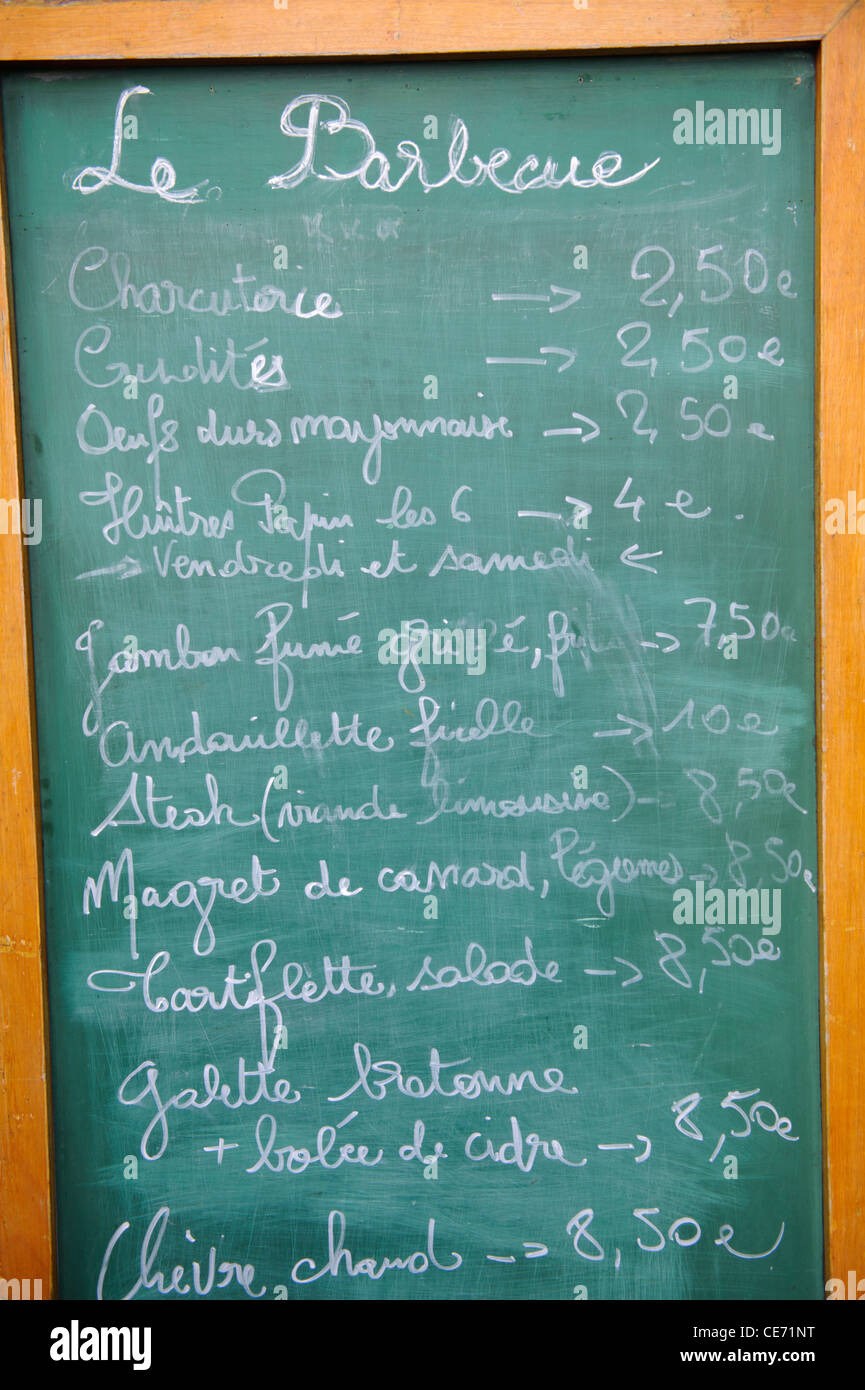 Le Barbecue
Charcuterie → 2,50e
Crudités → 2,50e
Oeufs durs mayonnaise → 2,50e
Huîtres Papin les 6 → 4e.
→ Vendredi et samedi ←
Jambon fumé grillé, → 7,50e
Andouillette ficelle → 10e
Steak (viande limousine) → 8,50e
Magret de canard, légumes → 8,50e
Tartiflette, salade → 8,50e
Galette bretonne
+ bolée de cidre → 8,50e
Chèvre chaud → 8,50e
alamy
Image ID: CE71NT
www.alamy.com